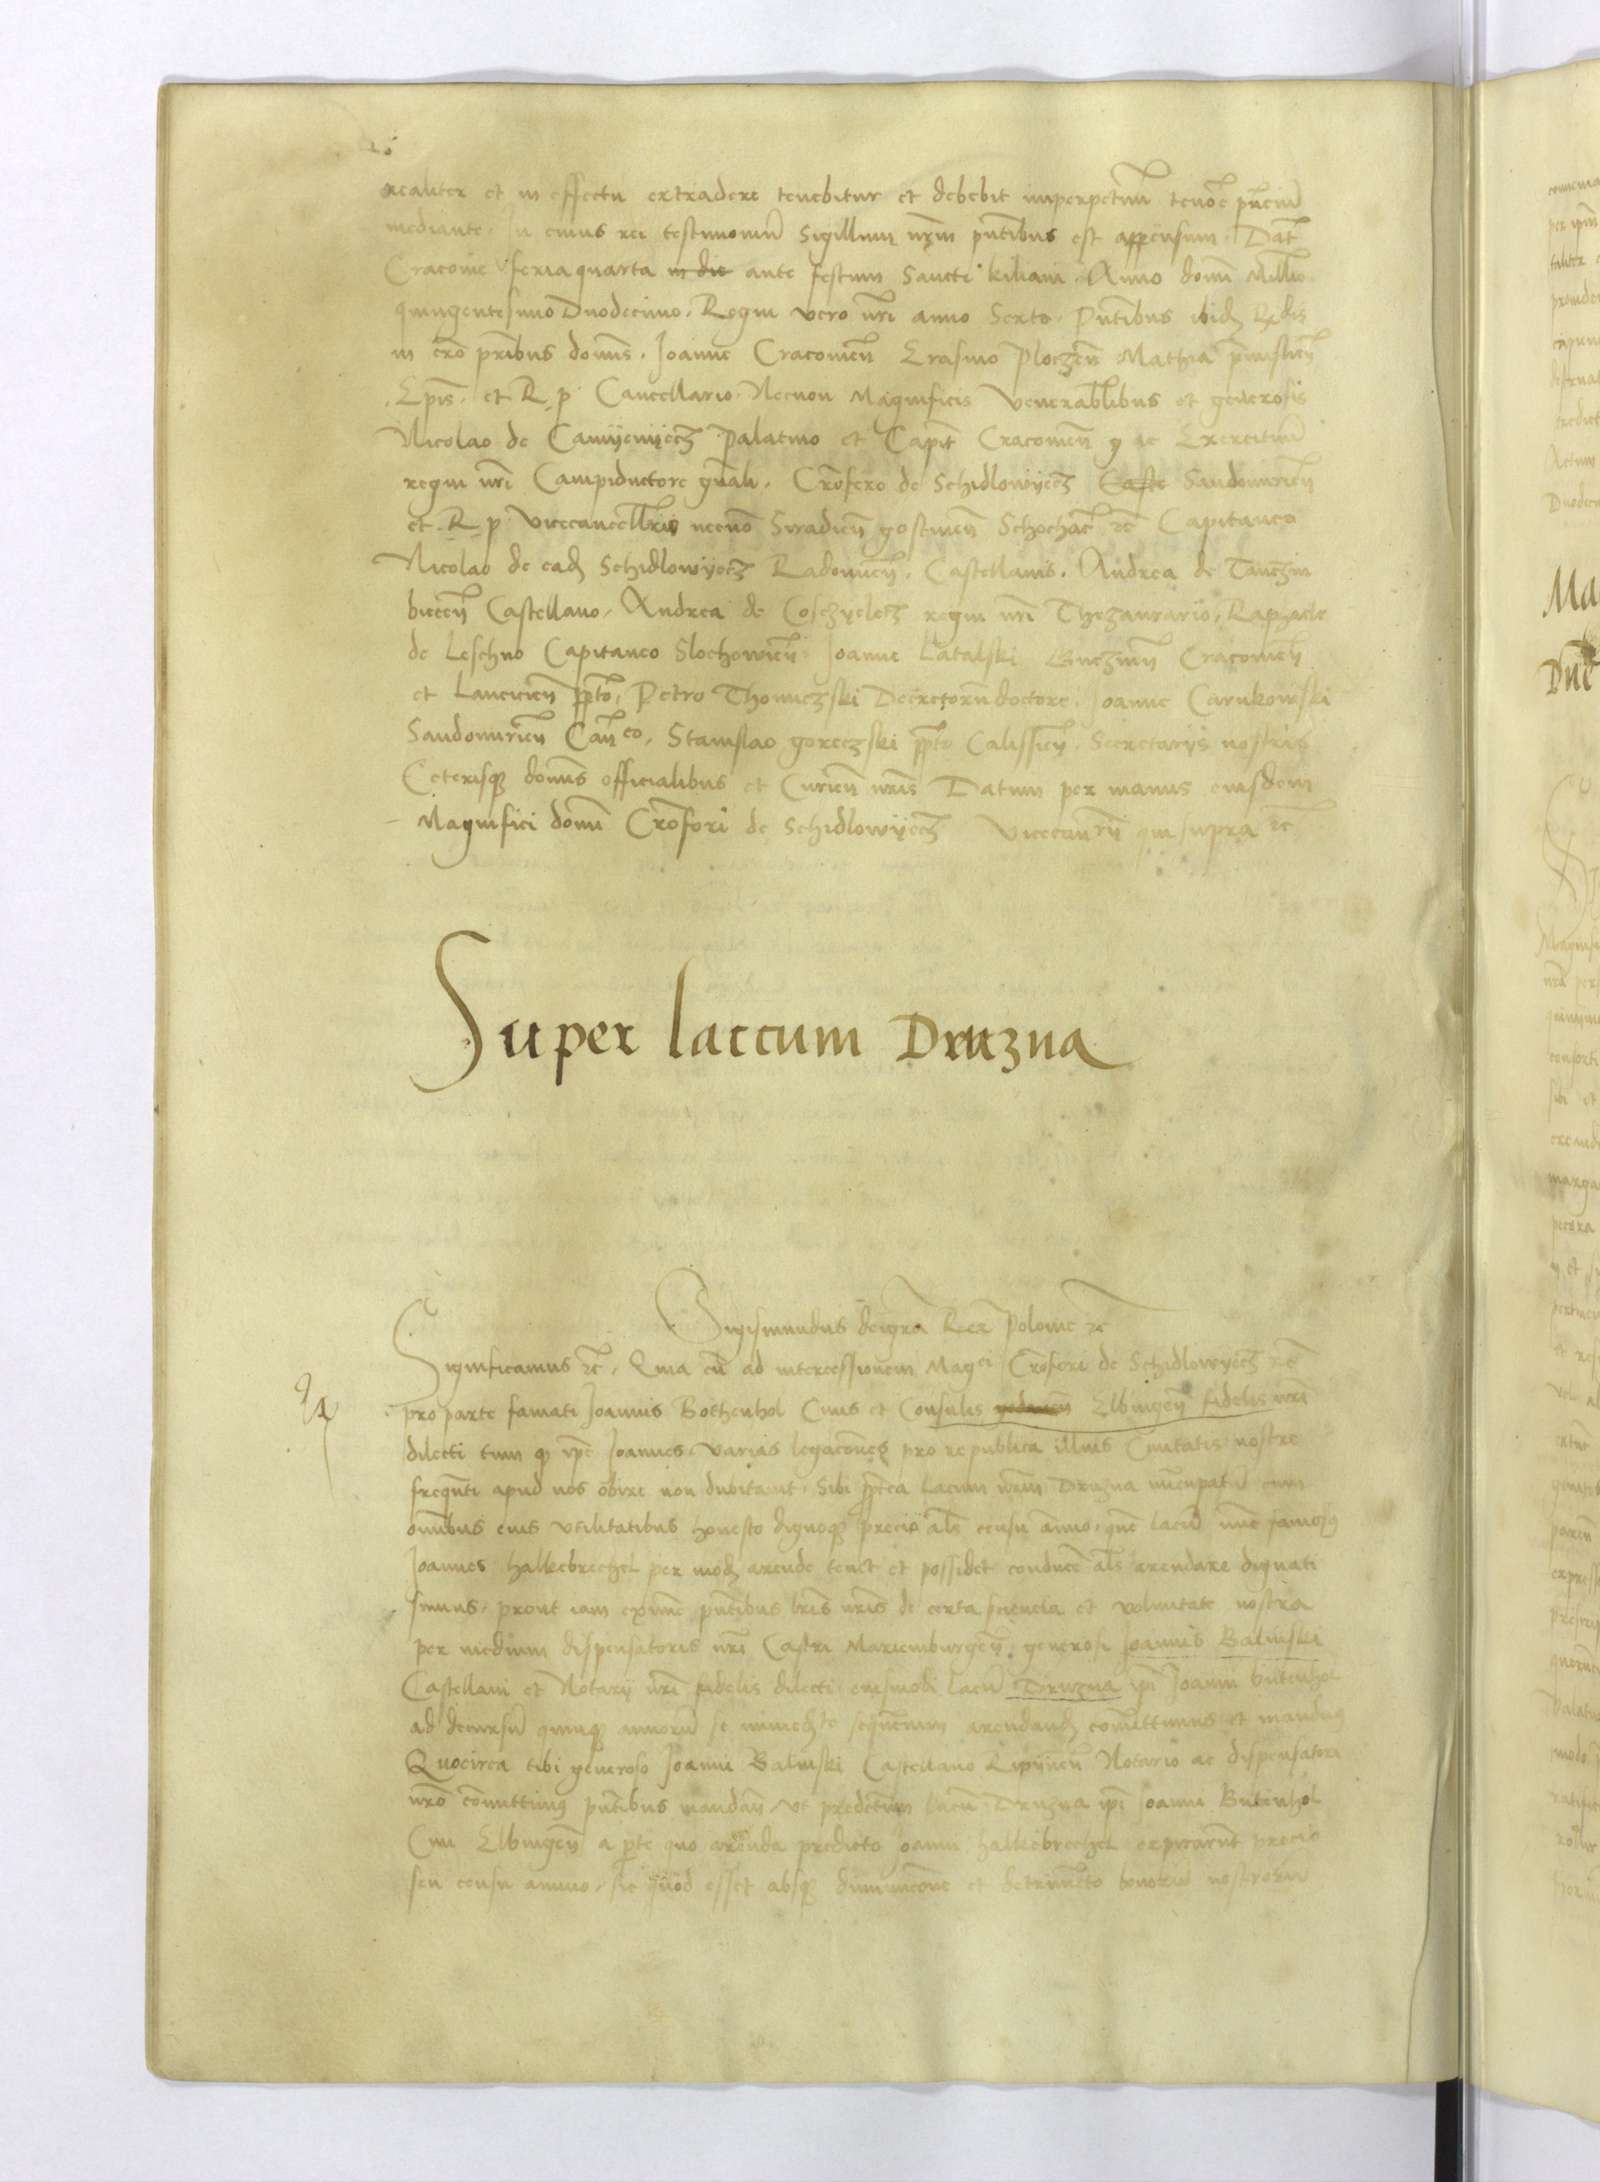 realiter et in effectu extradere tenebitur et debebit imperpetuum tenore pñcium
mediante. In cuius rei testimonium Sigillum nrm pñtibus est appensum. Dat
Cracovie feria quarta in die ante festum Sancti kiliani. Anno domi Millio
quingentesimo Duodecimo. Regni vero nri anno Sexto. Pñtibus ibid Rdis
in cro prībus domīs. Joanne Cracovien Erasmo Ploczen Mathia premislien
Epis. et R. p. Cancellario. Necnon Magnificis Venerabilibus et generosis
Nicolao de Camyenyecz Palatino et Capit Cracovien g ac Exercituu
regni nri Campiductore gnali. Cristofero de Schidlowyecz Caste Sandomirien
et R. p. vicecancellrio necno Siradien gostinen Schochac etc Capitaneo
Nicolao de ead Schidlowyecz Radomien. Castellanis. Andrea de Tanczin
biecen Castellano. Andrea de Coschyelecz regni nri Thezaurario. Raphaele
de Leschno Capitaneo Slochowien. Joanne Latalski Gneznen Cracovien
et Lancicien ppto. Petro Thomiczski Decretoru doctore. Joanne Carnkowski
Sandomirien Can co. Stanislao goreczski ppto Calissien. Secretarys nostris
Ceterisq domīs officialibus et Curien nris Datum per manus eiusdem
Magnifici domi Crofori de Schidlowyecz Vicecanrii qui supra etc
Super laccum Druzna
Sigismundus dei gra Rex Polonie etc
Significamus etc. Quia cu ad intercessionem Magci Crofori de Schidlowyecz etc
pro parte famati Joannis Bothenhol Civis et Consulis gedanen Elbingen fidelis nri
dilecti tum q ipe Joannes varias legacones pro republica illius Civitatis nostre
frequnti apud nos obire non dubitavit. Sibi pptea Lacum nrm Druzna nucupatu cum
omibus eius utilitatibus honesto dignoq precio als censu annuo. que lacu nuc famos
Joannes halkebrechel per mod arende tenet et possidet conduce als arendare dignati
simus. prout iam exnunc pntibus lris nris de certa sciencia et voluntate nostra
per medium dispensatoris nri Castri Mariemburgen. generosi Joannis Balinski
Castellani et Notary nri fidelis dilecti eiusmodi lacu Druzna ipi Joanni butenhol
ad decursu quinq annoru se immediate sequenciu arendand comittimus et mandus
Quocirca tibi generoso Joanni Balinski Castellano Ripynen Notario ac dispensatori
nro comittimus pntibus mandan. ut predictum lacu Druzna ipi Joanni Butenhol
Civi Elbingen a pte quo arenda predicto Joanni halkebrechel expiraverit precio
seu censu annuo. sic quod esset absq diminucione et detrimeto bonoru nostroru